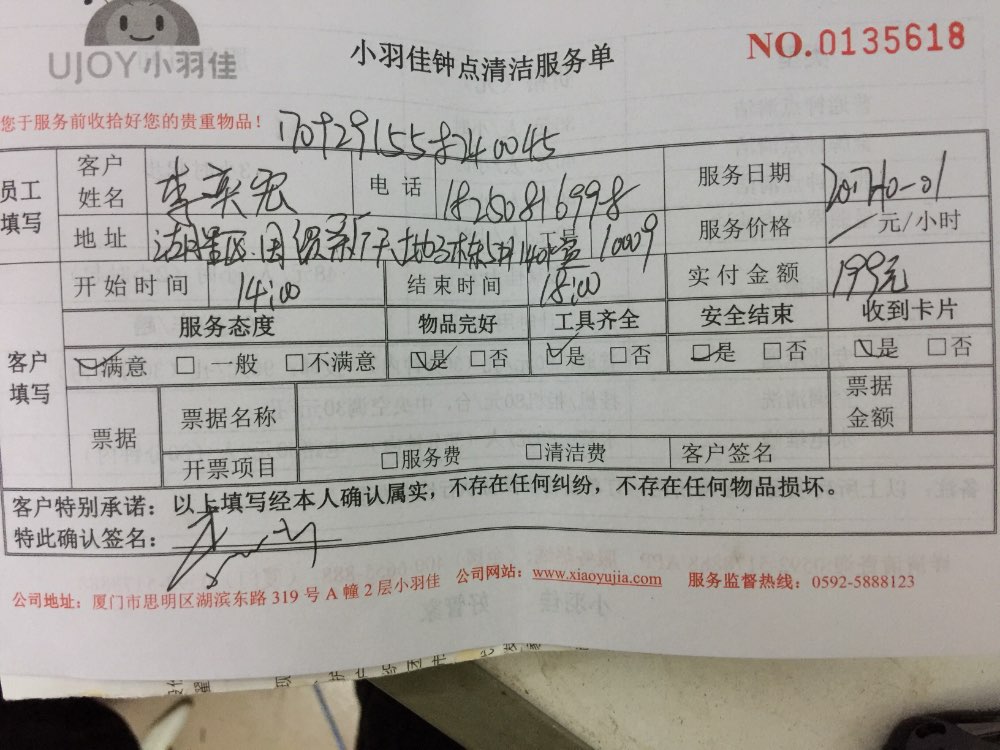 UJOY小羽佳
小羽佳钟点清洁服务单
NO.0135618
您于服务前收拾好您的贵重物品！
员工填写 客户姓名 李 宏 电话 18250816998 服务日期 2017-10-01
地址 湖里区 工号 10009 服务价格 元/小时
开始时间 14:00 结束时间 18:00 实付金额 199元
客户填写 服务态度 物品完好 工具齐全 安全结束 收到卡片
☑满意 □一般 □不满意 ☑是 □否 ☑是 □否 ☑是 □否 ☑是 □否
票据 票据名称 票据金额
开票项目 □服务费 □清洁费 客户签名
客户特别承诺：以上填写经本人确认属实，不存在任何纠纷，不存在任何物品损坏。
特此确认签名：
公司地址：厦门市思明区湖滨东路319号A幢2层小羽佳 公司网站：www.xiaoyujia.com 服务监督热线：0592-5888123